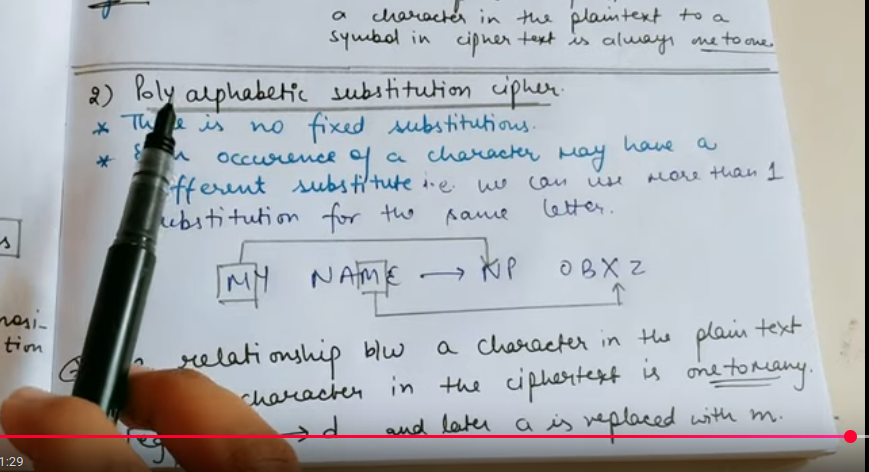 a character in the plaintext to a
symbol in cipher text is always one to one.
2) Poly alphabetic substitution cipher.
* is no fixed substitutions.
* occurence of a character may have a
substitute i.e. we can use more than 1
for the same letter.
MY NAME → KP OBXZ
relationship b/w a character in the plain text
character in the ciphertext is one to many.
→ d and later a is replaced with m.
s
tion
1:29